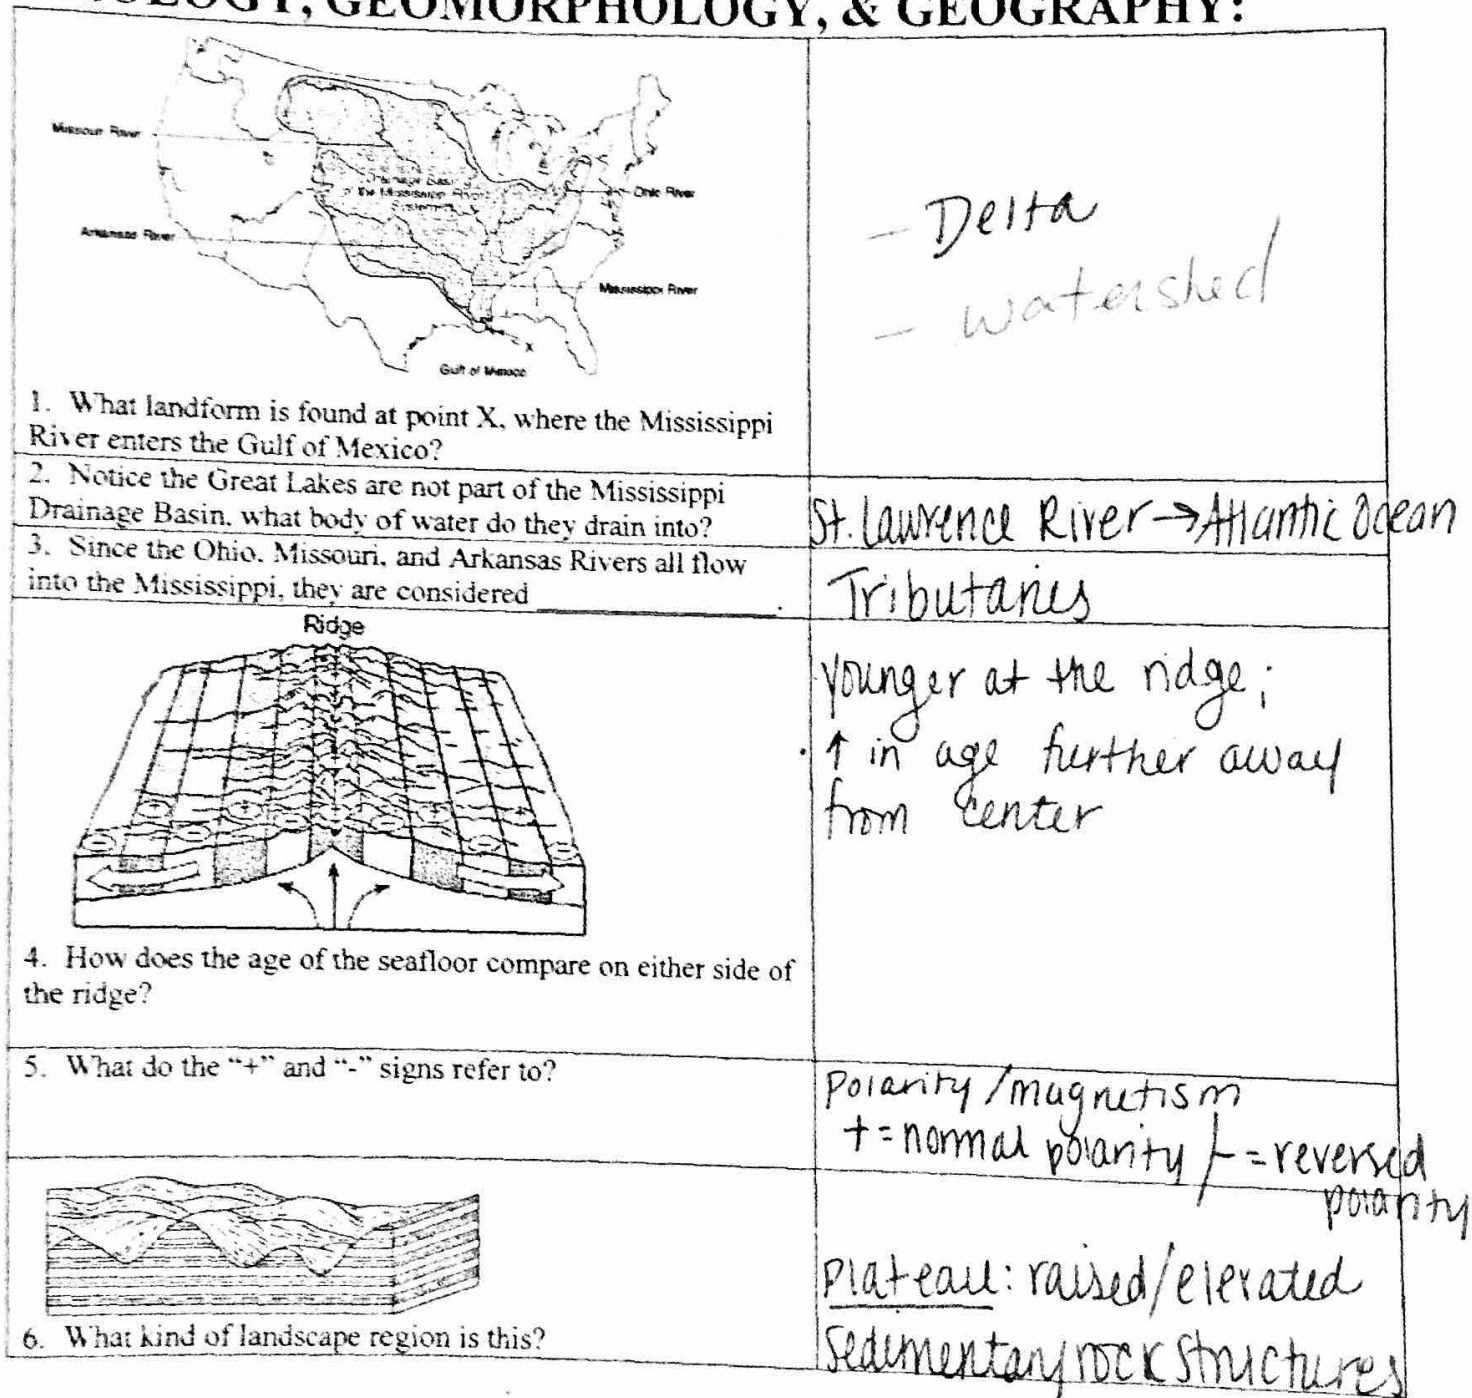 GEOMORPHOLOGY, & GEOGRAPHY:
Missouri River
Drainage Basin
of the Mississippi River
System
Ohio River
Arkansas River
Mississippi River
X
Gulf of Mexico
1. What landform is found at point X, where the Mississippi
River enters the Gulf of Mexico?
- Delta
- watershed
2. Notice the Great Lakes are not part of the Mississippi
Drainage Basin, what body of water do they drain into?
St. Lawrence River → Atlantic Ocean
3. Since the Ohio, Missouri, and Arkansas Rivers all flow
into the Mississippi, they are considered ______________.
Tributaries
Ridge
4. How does the age of the seafloor compare on either side of
the ridge?
younger at the ridge;
• ↑ in age further away
from center
5. What do the "+" and "-" signs refer to?
Polarity/magnetism
+ = normal polarity / - = reversed
polarity
6. What kind of landscape region is this?
Plateau: raised/elevated
sedimentary rock structures